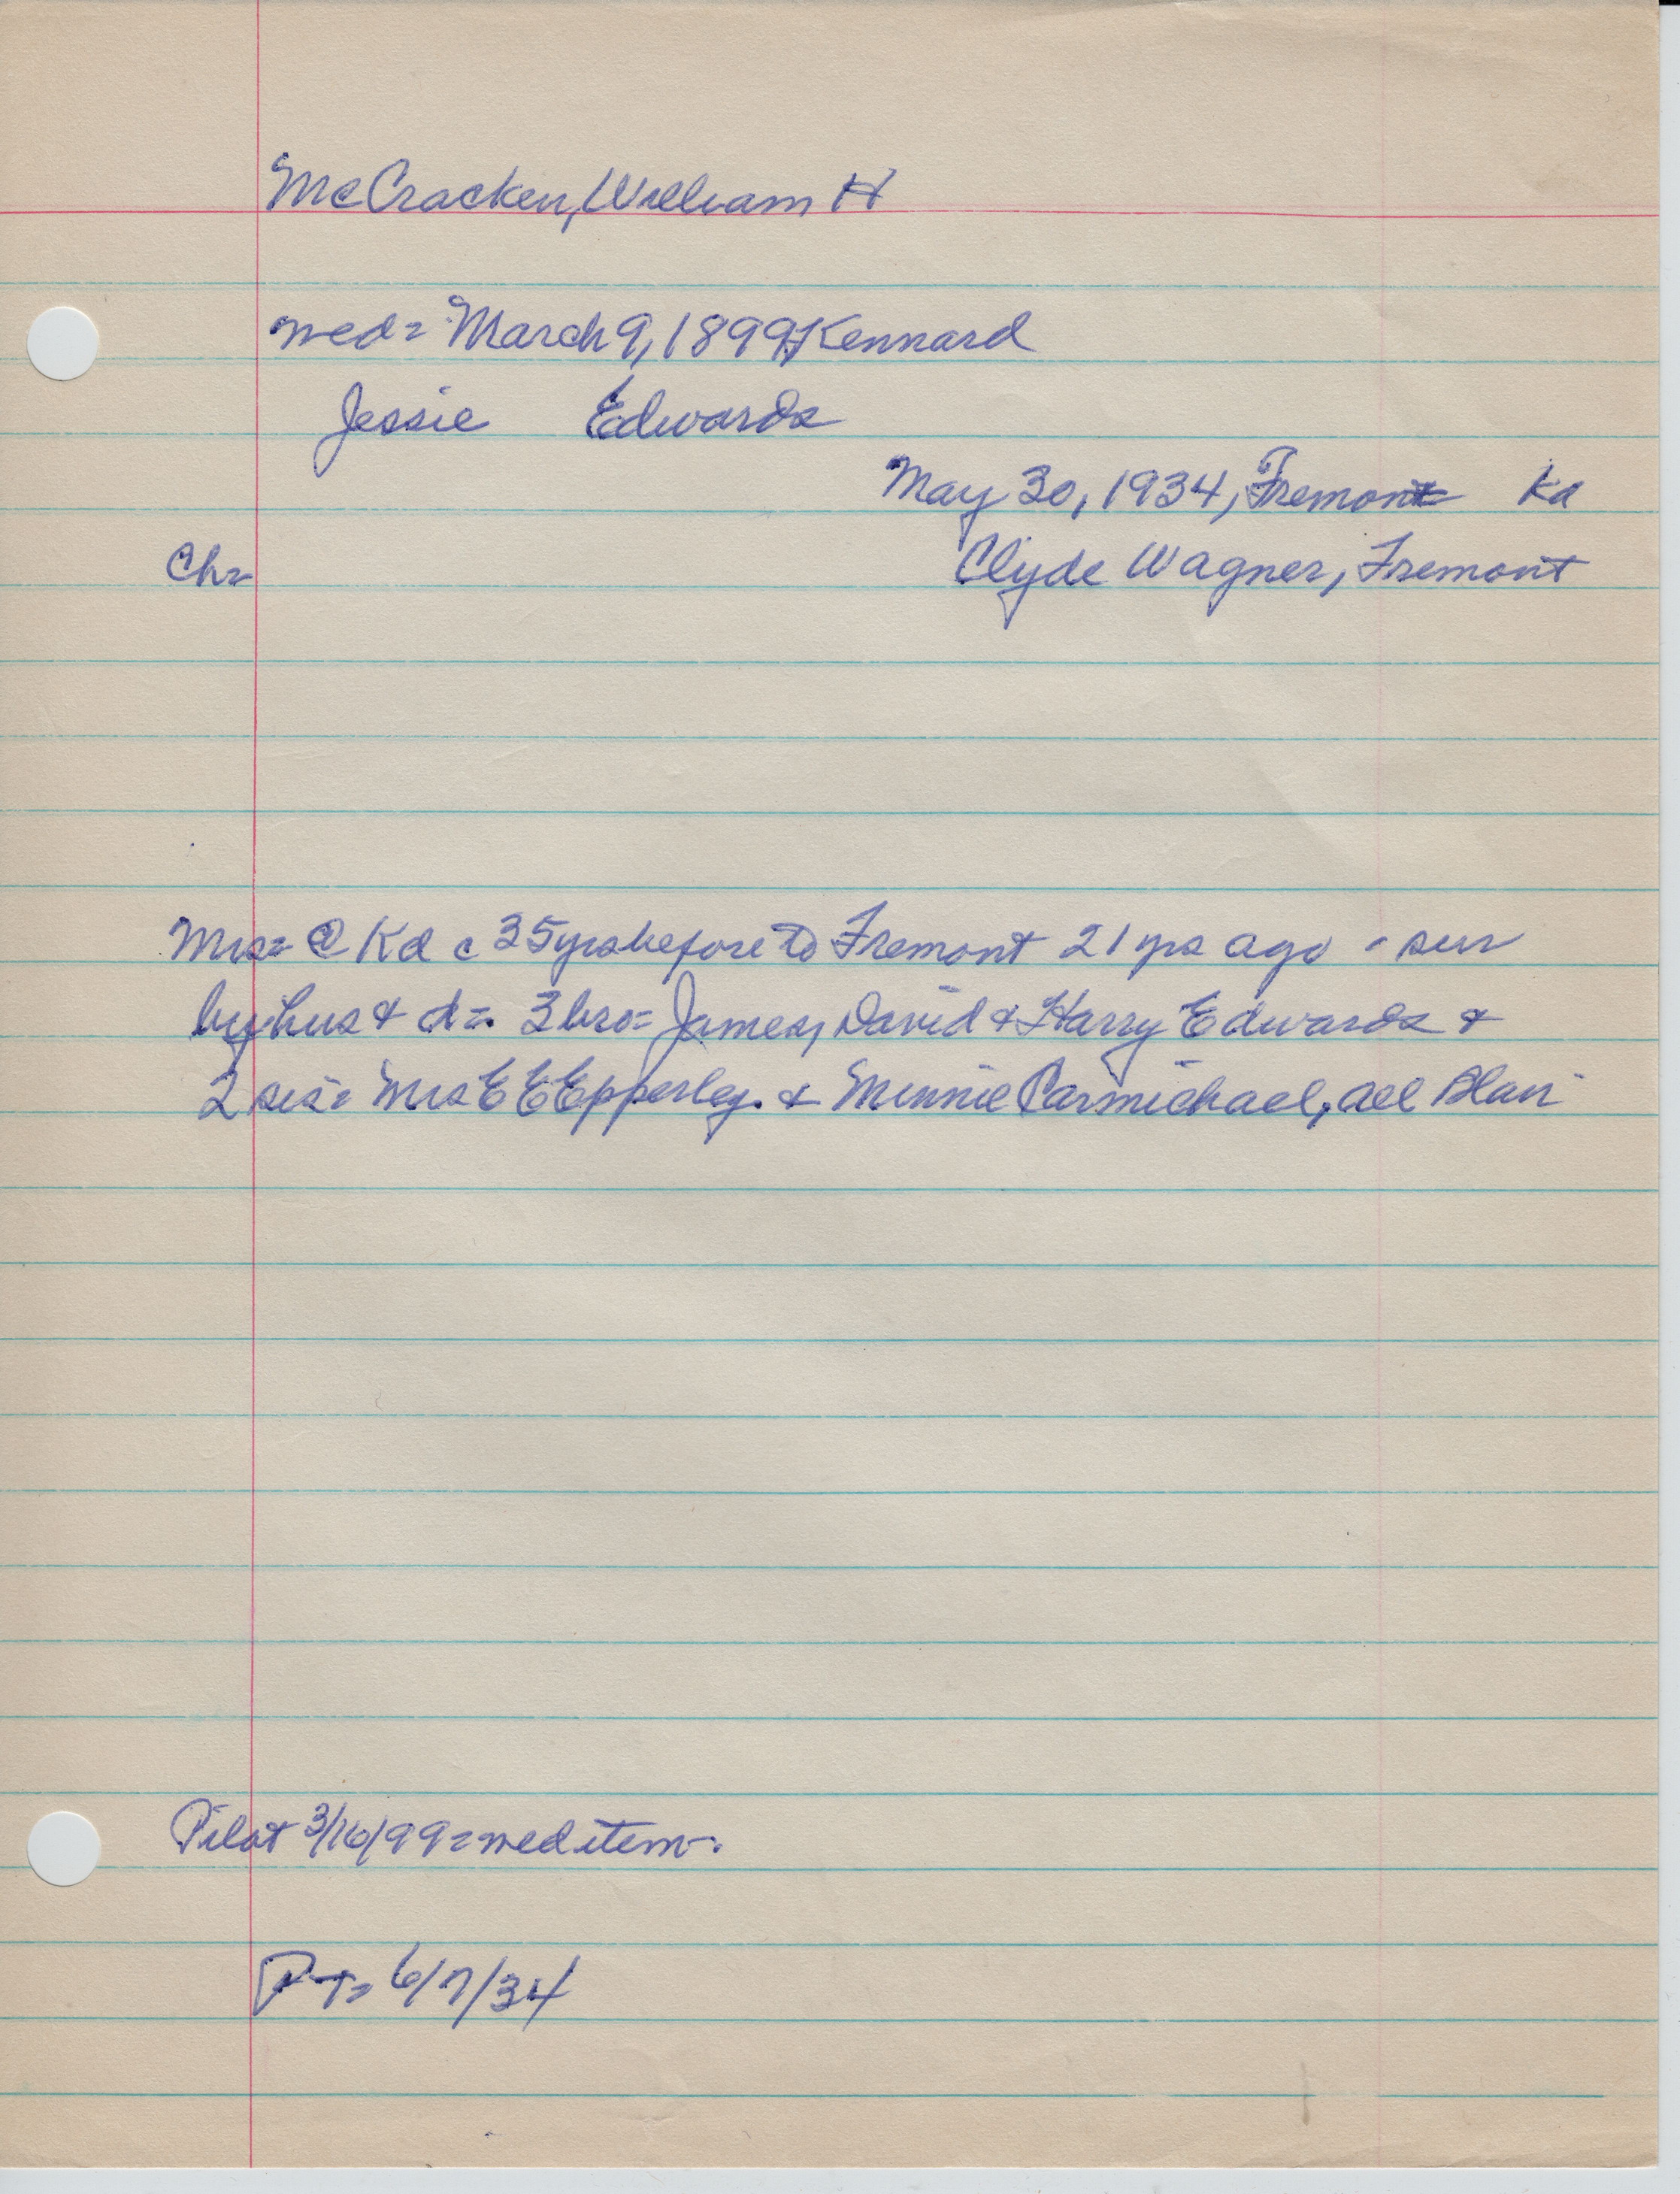 McCracken, William H
wed= March 9, 1899, Kennard
Jessie Edwards
May 30, 1934, Fremont Kd
Ch= Clyde Wagner, Fremont
Mrs= @ Kd c 35 yrs before to Fremont 21 yrs ago - sur
by hus & d=. 3 bro= James, David & Harry Edwards &
2 sis= Mrs E E Epperley. & Minnie Carmichael, all Blair
Pilot 3/16/99= wed item-.
P-T= 6/7/34